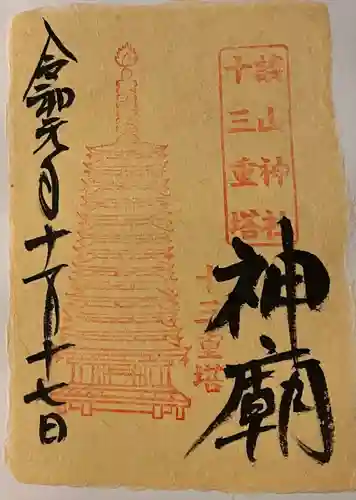 談山神社
十三重塔
神廟
十三重塔
令和元年十一月十七日